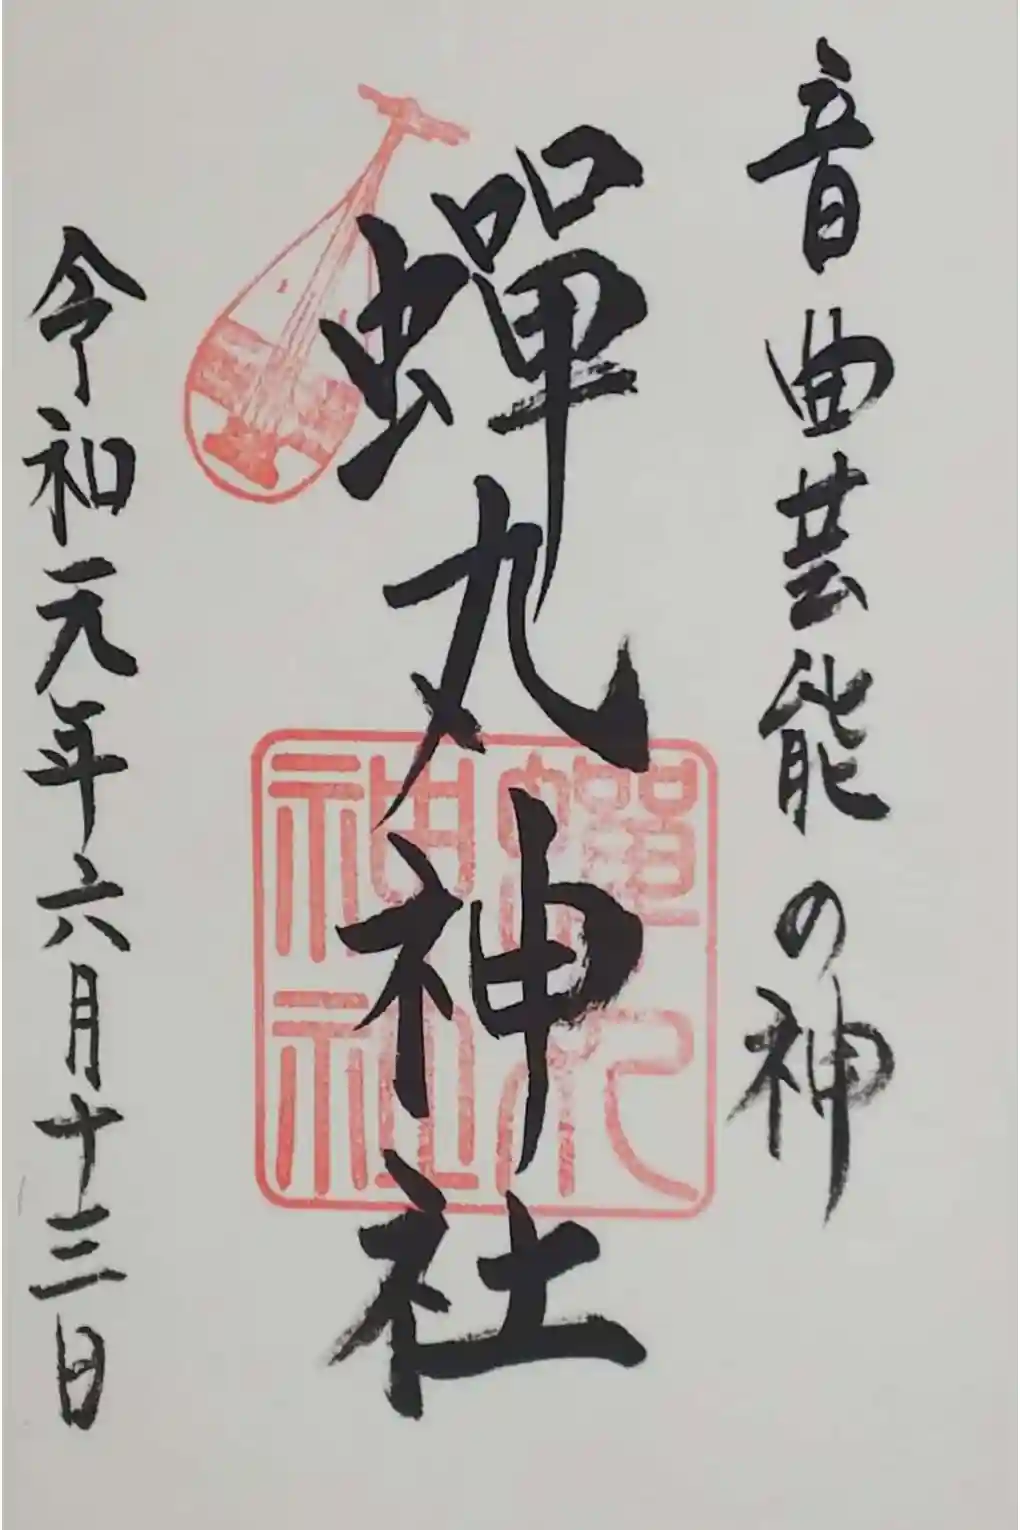 音曲芸能の神
蟬丸神社
蟬丸神社
令和元年六月十三日